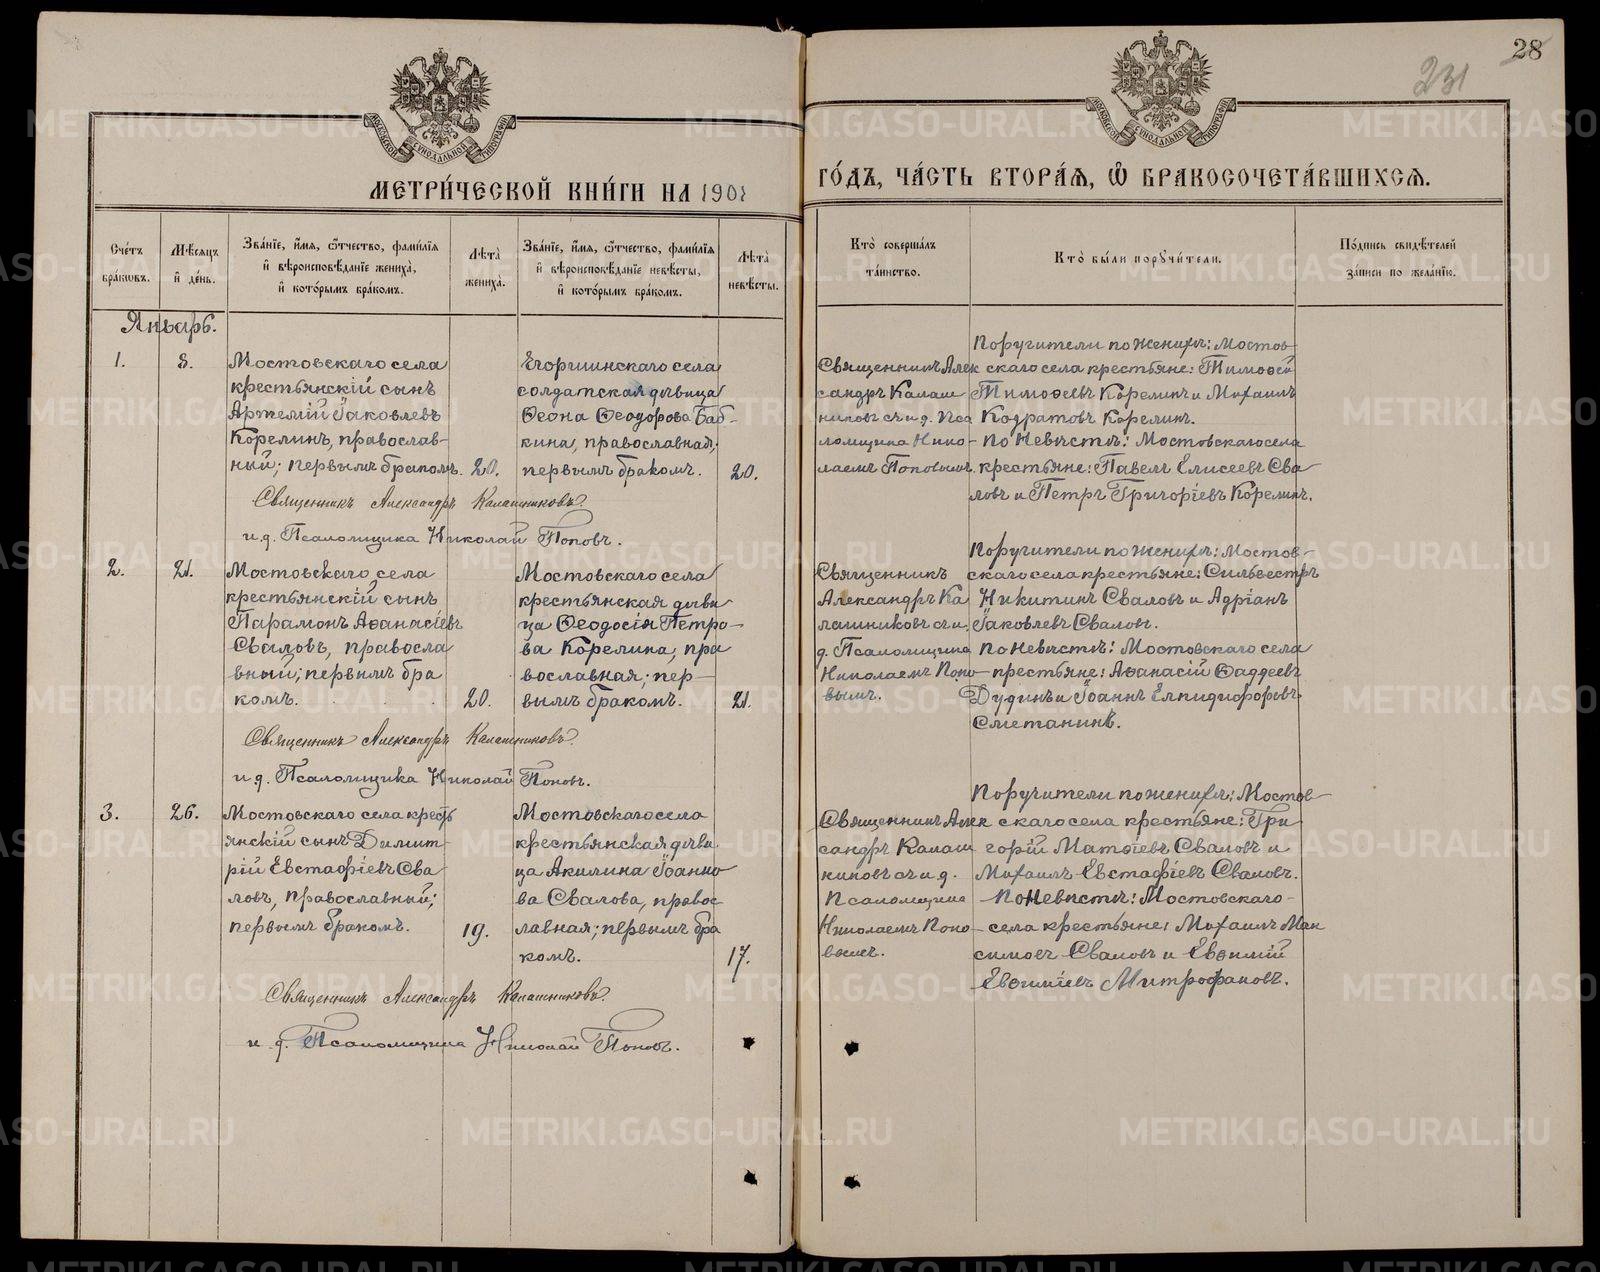 28
231
МЕТРИ́ЧЕСКОЙ КНИ́ГИ НА 1901
ГО́ДЪ, ЧА́СТЬ ВТОРА́Ѧ, Ѽ БРАКОСОЧЕТА́ВШИХСѦ.
Сче́тъ бра́кѡвъ.
Мѣ́сѧцъ и҆ де́нь.
Зва́нїе, и҆́мѧ, ѻ҆́тчество, фами́лїѧ и҆ вѣроисповѣ́данїе жениха̀, и҆ кото́рымъ бра́комъ.
Лѣта̀ жениха̀.
Зва́нїе, и҆́мѧ, ѻ҆́тчество, фами́лїѧ и҆ вѣроисповѣ́данїе невѣ́сты, и҆ кото́рымъ бра́комъ.
Лѣта̀ невѣ́сты.
Кто̀ соверша́лъ та́инство.
Кто̀ бы́ли порꙋчи́тели.
По́дпись свидѣ́телей за́писи по жела́нїю.
Январь.
1.
8.
Мостовскаго села
крестьянскій сынъ
Артемій Іаковлевъ
Корелинъ, православ-
ный; первымъ бракомъ.
20.
Егоршинскаго села
солдатская дѣвица
Ѳеона Ѳеодорова Баб-
кина, православная;
первымъ бракомъ.
20.
Священникъ Алек
сандръ Калаш
никовъ съ и.д. Пса
ломщика Нико-
лаемъ Поповымъ.
Поручители по женихѣ: Мостов-
скаго села крестьяне: Тимоѳей
Тимоѳеевъ Корелинъ и Михаилъ
Кодратовъ Корелинъ.
По Невѣстѣ: Мостовскаго села
крестьяне: Павелъ Елисеевъ Сва
ловъ и Петръ Григоріевъ Корелинъ.
Священникъ Александръ Калашниковъ.
и.д. Псаломщика Николай Поповъ.
2.
21.
Мостовскаго села
крестьянскій сынъ
Парамонъ Аѳанасіевъ
Сваловъ, правосла
вный; первымъ бра
комъ.
20.
Мостовскаго села
крестьянская дѣви
ца Ѳеодосія Петро-
ва Корелина, пра
вославная; пер-
вымъ бракомъ.
21.
Священникъ
Александръ Ка
лашниковъ съ и.
д. Псаломщика
Николаемъ Попо-
вымъ.
Поручители по женихѣ: Мостов-
скаго села крестьяне: Сильвестръ
Никитинъ Сваловъ и Адріанъ
Іаковлевъ Сваловъ.
По Невѣстѣ: Мостовскаго села
крестьяне: Аѳанасій Ѳаддеевъ
Дудинъ и Іоаннъ Елпидифоровъ
Сметанинъ.
Священникъ Александръ Калашниковъ.
и.д. Псаломщика Николай Поповъ.
3.
26.
Мостовскаго села кресть
янскій сынъ Димит-
рій Евстафіевъ Сва
ловъ, православный;
первымъ бракомъ.
19.
Мостовскаго села
крестьянская дѣви
ца Акилина Іоанно
ва Свалова, право-
славная; первымъ бра
комъ.
17.
Священникъ Алек
сандръ Калаш
никовъ съ и.д.
Псаломщика
Николаемъ Попо-
вымъ.
Поручители по женихѣ: Мостов-
скаго села крестьяне: Гри
горій Матѳіевъ Сваловъ и
Михаилъ Евстафіевъ Сваловъ.
По Невѣстѣ: Мостовскаго-
села крестьяне: Михаилъ Мак
симовъ Сваловъ и Евѳимій
Евѳиміевъ Митрофановъ.
Священникъ Александръ Калашниковъ.
и.д. Псаломщика Николай Поповъ.
METRIKI.GASO-URAL.RU